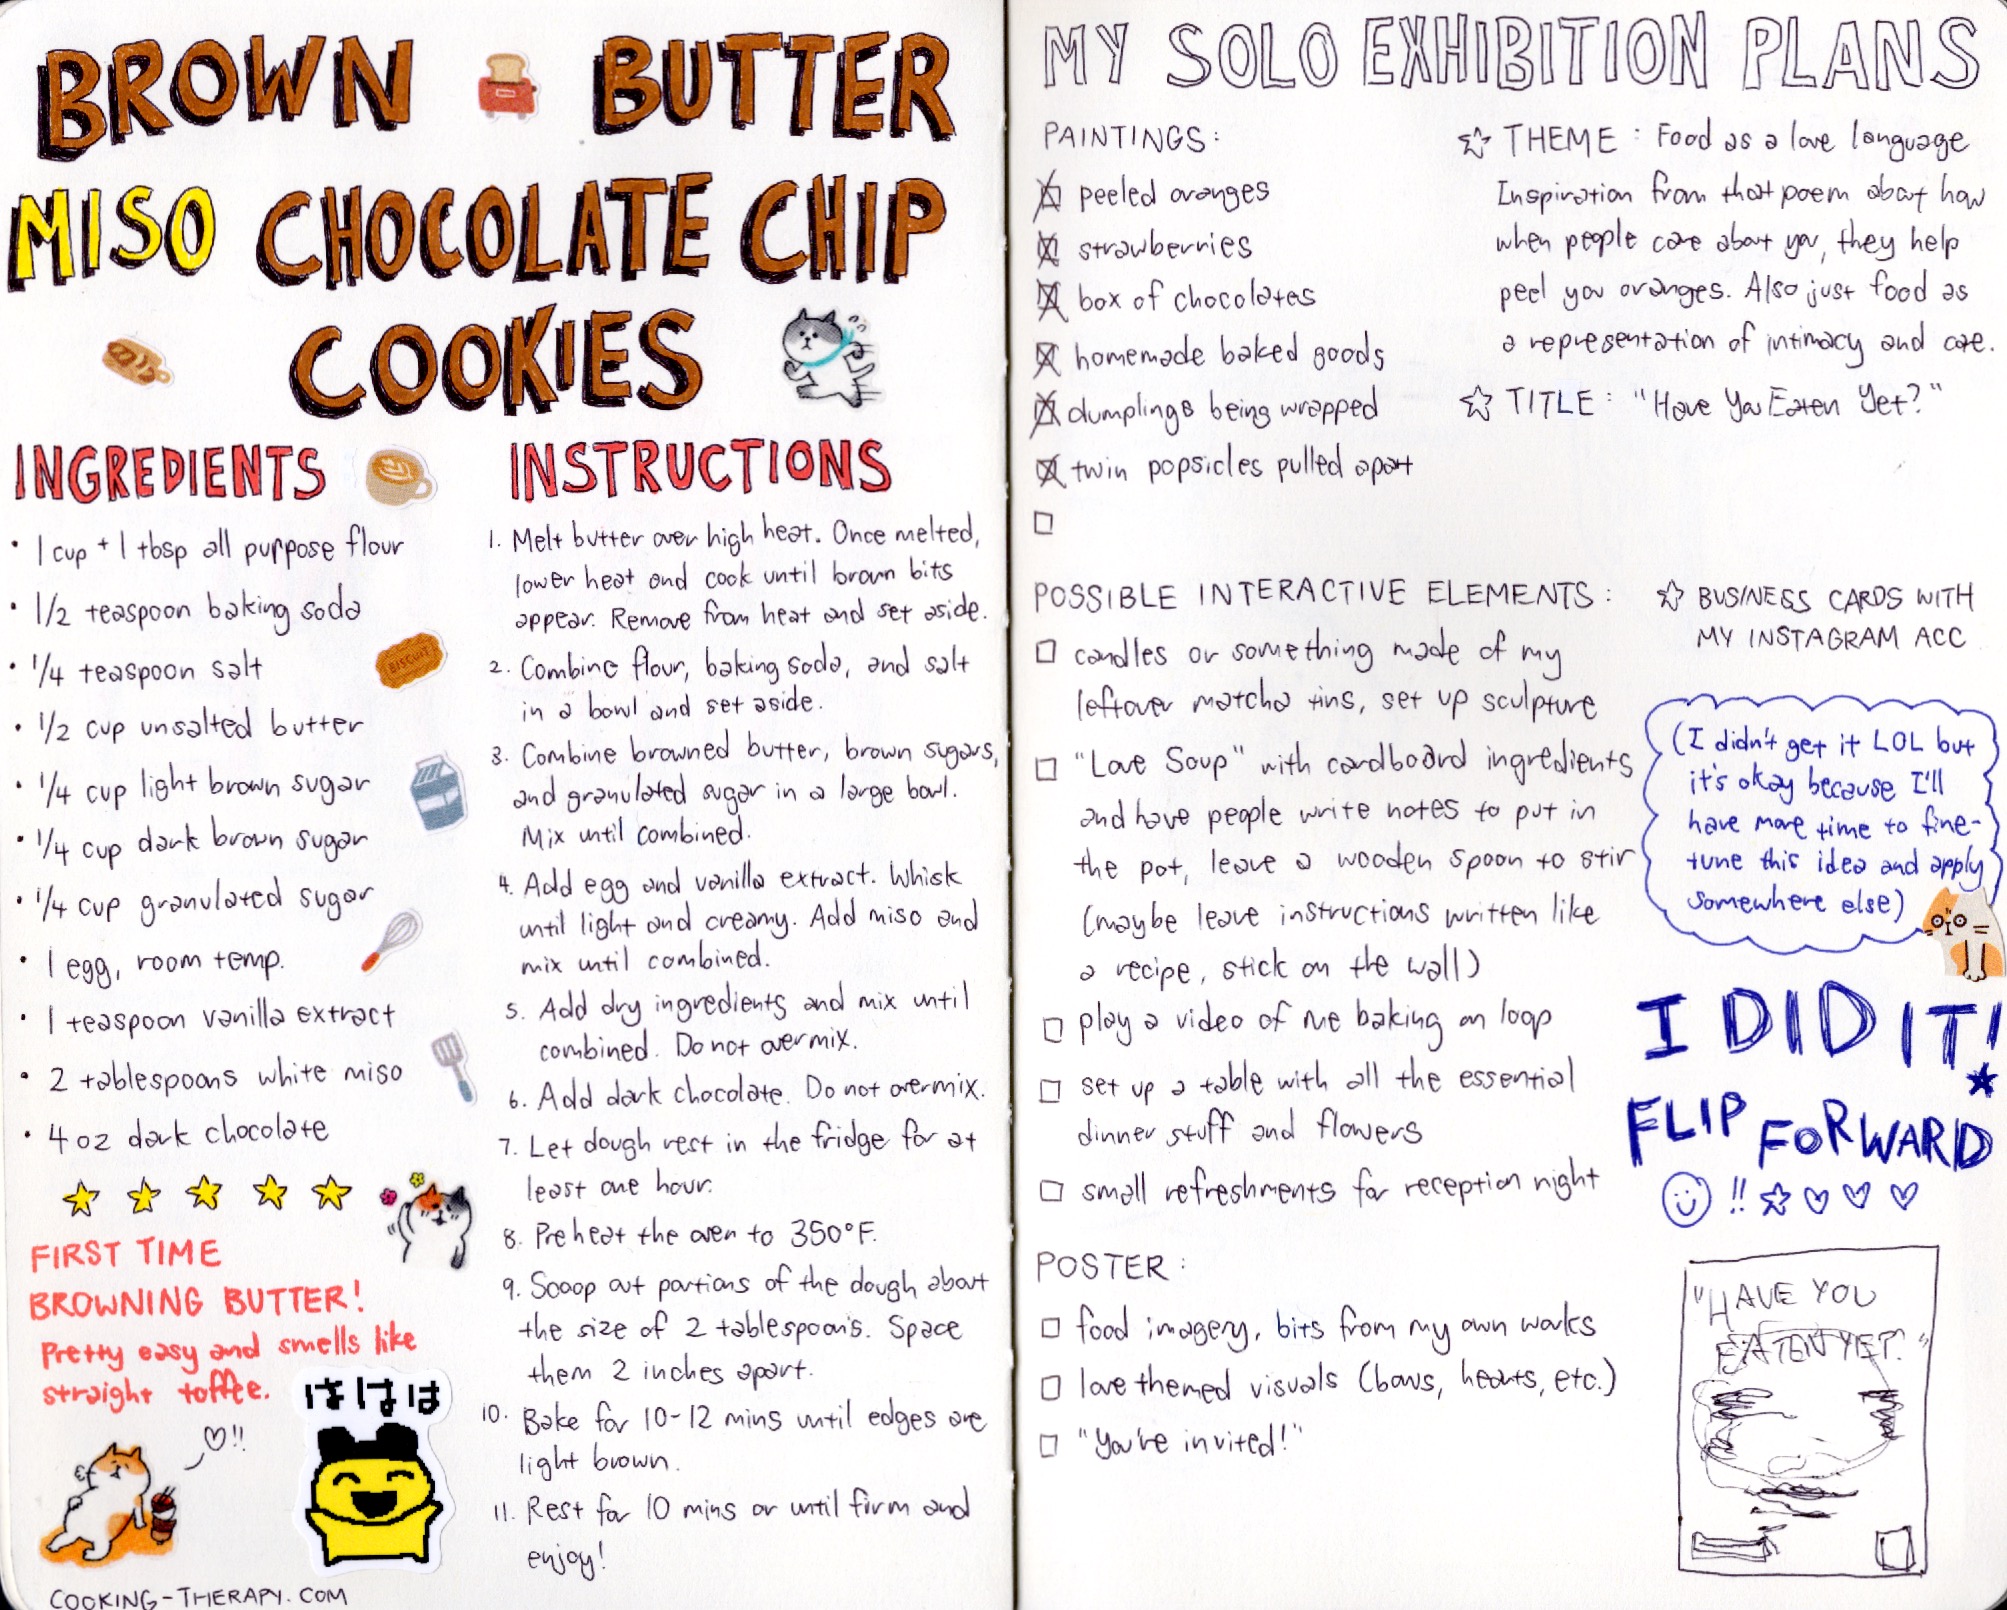 BROWN BUTTER
MISO CHOCOLATE CHIP
COOKIES
INGREDIENTS
• 1 cup + 1 tbsp all purpose flour
• 1/2 teaspoon baking soda
• 1/4 teaspoon salt
• 1/2 cup unsalted butter
• 1/4 cup light brown sugar
• 1/4 cup dark brown sugar
• 1/4 cup granulated sugar
• 1 egg, room temp.
• 1 teaspoon vanilla extract
• 2 tablespoons white miso
• 4 oz dark chocolate
BISCUIT
FIRST TIME
BROWNING BUTTER!
Pretty easy and smells like
straight toffee.
♡!!
ははは
COOKING-THERAPY.COM
INSTRUCTIONS
1. Melt butter over high heat. Once melted,
lower heat and cook until brown bits
appear. Remove from heat and set aside.
2. Combine flour, baking soda, and salt
in a bowl and set aside.
3. Combine browned butter, brown sugars,
and granulated sugar in a large bowl.
Mix until combined.
4. Add egg and vanilla extract. Whisk
until light and creamy. Add miso and
mix until combined.
5. Add dry ingredients and mix until
combined. Do not overmix.
6. Add dark chocolate. Do not overmix.
7. Let dough rest in the fridge for at
least one hour.
8. Preheat the oven to 350°F.
9. Scoop out portions of the dough about
the size of 2 tablespoons. Space
them 2 inches apart.
10. Bake for 10-12 mins until edges are
light brown.
11. Rest for 10 mins or until firm and
enjoy!
MY SOLO EXHIBITION PLANS
PAINTINGS:
peeled oranges
strawberries
box of chocolates
homemade baked goods
dumplings being wrapped
twin popsicles pulled apart
☆ THEME: Food as a love language
Inspiration from that poem about how
when people care about you, they help
peel you oranges. Also just food as
a representation of intimacy and care.
☆ TITLE: "Have You Eaten Yet?"
POSSIBLE INTERACTIVE ELEMENTS:
candles or something made of my
leftover matcha tins, set up sculpture
"Love Soup" with cardboard ingredients
and have people write notes to put in
the pot, leave a wooden spoon to stir
(maybe leave instructions written like
a recipe, stick on the wall)
play a video of me baking on loop
set up a table with all the essential
dinner stuff and flowers
small refreshments for reception night
☆ BUSINESS CARDS WITH
MY INSTAGRAM ACC
(I didn't get it LOL but
it's okay because I'll
have more time to fine-
tune this idea and apply
somewhere else)
I DID IT!
FLIP FORWARD
!!
POSTER:
food imagery, bits from my own works
love themed visuals (bows, hearts, etc.)
"You're invited!"
"HAVE YOU
EATEN YET?"